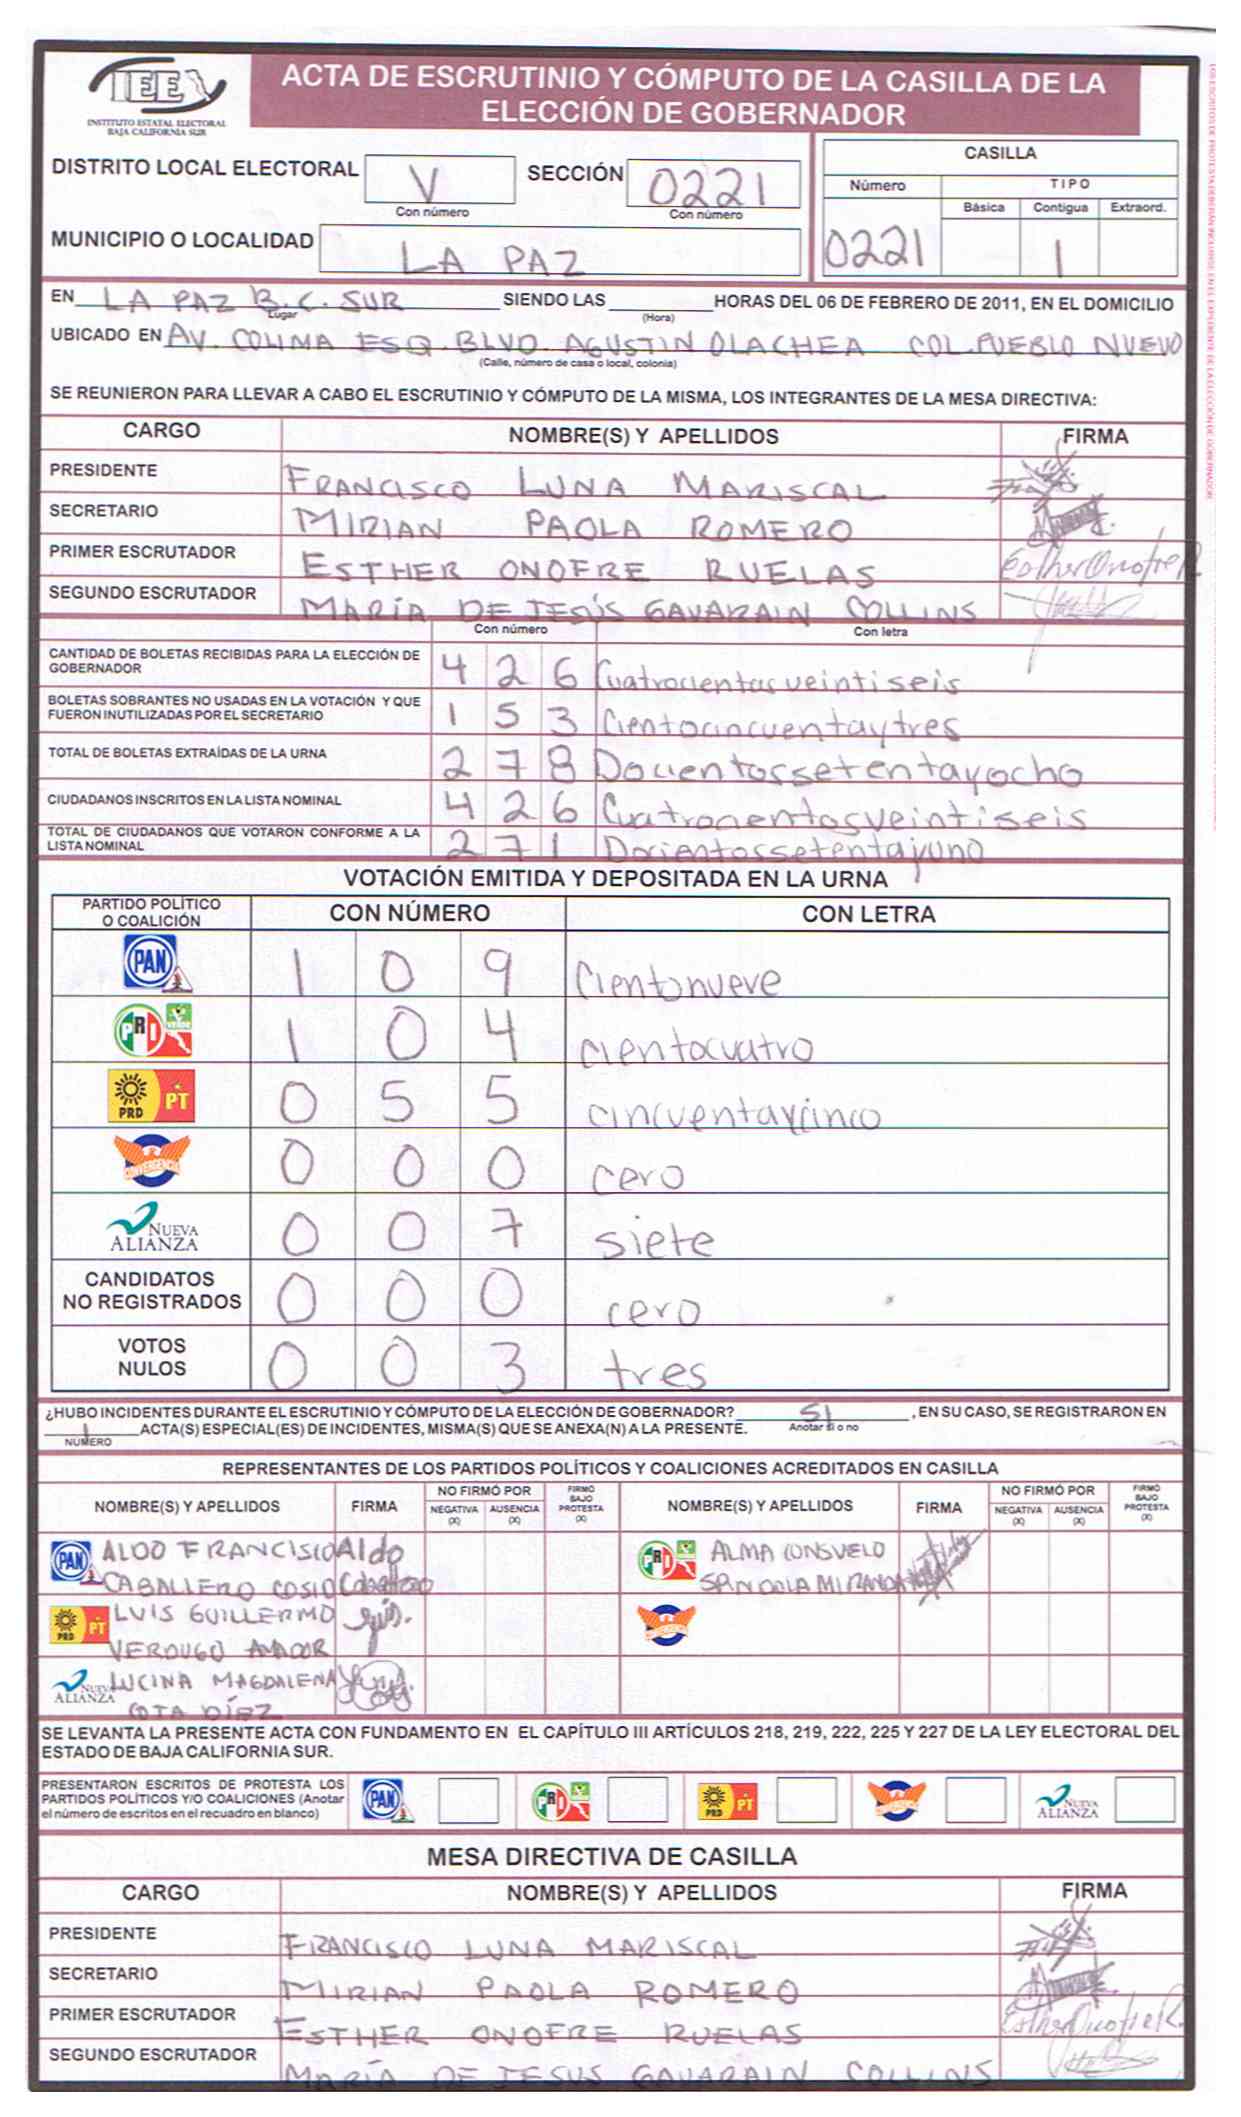 IEE
INSTITUTO ESTATAL ELECTORAL
BAJA CALIFORNIA SUR
ACTA DE ESCRUTINIO Y CÓMPUTO DE LA CASILLA DE LA
ELECCIÓN DE GOBERNADOR
DISTRITO LOCAL ELECTORAL V SECCIÓN 0221
Con número Con número
MUNICIPIO O LOCALIDAD LA PAZ
CASILLA
Número TIPO
Básica Contigua Extraord.
0221 1
EN LA PAZ B.C. SUR SIENDO LAS HORAS DEL 06 DE FEBRERO DE 2011, EN EL DOMICILIO
Lugar (Hora)
UBICADO EN AV. COLIMA ESQ. BLVD. AGUSTIN OLACHEA COL. PUEBLO NUEVO
(Calle, número de casa o local, colonia)
SE REUNIERON PARA LLEVAR A CABO EL ESCRUTINIO Y CÓMPUTO DE LA MISMA, LOS INTEGRANTES DE LA MESA DIRECTIVA:
CARGO NOMBRE(S) Y APELLIDOS FIRMA
PRESIDENTE FRANCISCO LUNA MARISCAL
SECRETARIO MIRIAN PAOLA ROMERO
PRIMER ESCRUTADOR ESTHER ONOFRE RUELAS Esther Onofre R.
SEGUNDO ESCRUTADOR MARÍA DE JESÚS GAVARAIN COLLINS
Con número Con letra
CANTIDAD DE BOLETAS RECIBIDAS PARA LA ELECCIÓN DE
GOBERNADOR 4 2 6 Cuatrocientosveintiseis
BOLETAS SOBRANTES NO USADAS EN LA VOTACIÓN Y QUE
FUERON INUTILIZADAS POR EL SECRETARIO 1 5 3 Cientocincuentaytres
TOTAL DE BOLETAS EXTRAÍDAS DE LA URNA 2 7 8 Docientossetentayocho
CIUDADANOS INSCRITOS EN LA LISTA NOMINAL 4 2 6 Cuatrocientosveintiseis
TOTAL DE CIUDADANOS QUE VOTARON CONFORME A LA
LISTA NOMINAL 2 7 1 Docientossetentayuno
VOTACIÓN EMITIDA Y DEPOSITADA EN LA URNA
PARTIDO POLÍTICO
O COALICIÓN CON NÚMERO CON LETRA
PAN 1 0 9 Cientonueve
PRI VERDE 1 0 4 cientocuatro
PRD PT 0 5 5 cincuentaycinco
CONVERGENCIA 0 0 0 cero
NUEVA
ALIANZA 0 0 7 siete
CANDIDATOS
NO REGISTRADOS 0 0 0 cero
VOTOS
NULOS 0 0 3 tres
¿HUBO INCIDENTES DURANTE EL ESCRUTINIO Y CÓMPUTO DE LA ELECCIÓN DE GOBERNADOR? SI , EN SU CASO, SE REGISTRARON EN
1 ACTA(S) ESPECIAL(ES) DE INCIDENTES, MISMA(S) QUE SE ANEXA(N) A LA PRESENTE. Anotar si o no
NÚMERO
REPRESENTANTES DE LOS PARTIDOS POLÍTICOS Y COALICIONES ACREDITADOS EN CASILLA
NOMBRE(S) Y APELLIDOS FIRMA NO FIRMÓ POR NEGATIVA (X) AUSENCIA (X) FIRMÓ BAJO PROTESTA (X) NOMBRE(S) Y APELLIDOS FIRMA NO FIRMÓ POR NEGATIVA (X) AUSENCIA (X) FIRMÓ BAJO PROTESTA (X)
PAN ALDO FRANCISCO Aldo PRI ALMA CONSUELO
CABALLERO COSIO Caballero MIRANDA
PRD PT LUIS GUILLERMO Luis.
VERDUGO AMADOR
NUEVA ALIANZA LUCINA MAGDALENA
COTA DÍAZ
SE LEVANTA LA PRESENTE ACTA CON FUNDAMENTO EN EL CAPÍTULO III ARTÍCULOS 218, 219, 222, 225 Y 227 DE LA LEY ELECTORAL DEL
ESTADO DE BAJA CALIFORNIA SUR.
PRESENTARON ESCRITOS DE PROTESTA LOS
PARTIDOS POLÍTICOS Y/O COALICIONES (Anotar
el número de escritos en el recuadro en blanco) PAN PRI PRD PT NUEVA ALIANZA
MESA DIRECTIVA DE CASILLA
CARGO NOMBRE(S) Y APELLIDOS FIRMA
PRESIDENTE FRANCISCO LUNA MARISCAL
SECRETARIO MIRIAN PAOLA ROMERO
PRIMER ESCRUTADOR ESTHER ONOFRE RUELAS Esther Onofre R.
SEGUNDO ESCRUTADOR MARÍA DE JESUS GAVARAIN COLLINS